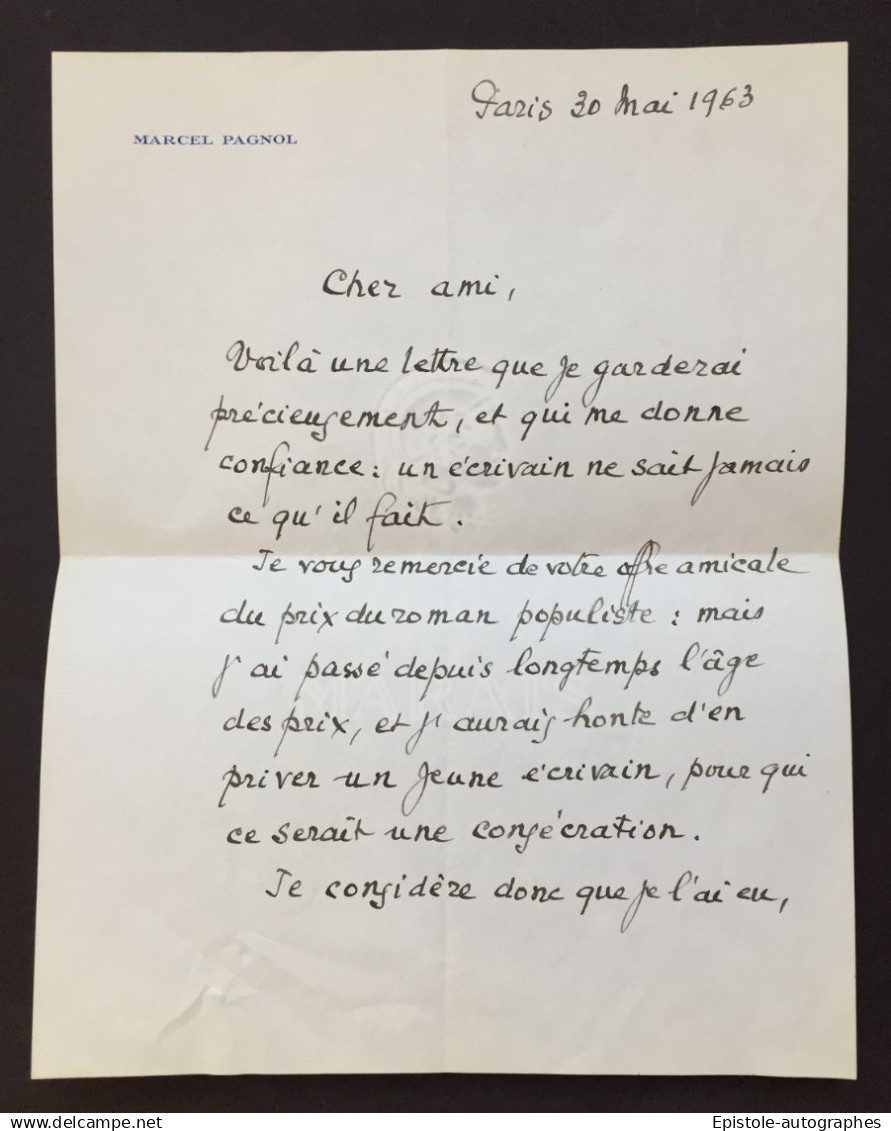 Paris 30 Mai 1963
MARCEL PAGNOL
Cher ami,
Voilà une lettre que je garderai
précieusement, et qui me donne
confiance : un écrivain ne sait jamais
ce qu'il fait.
Je vous remercie de votre offre amicale
du prix du roman populiste : mais
j'ai passé depuis longtemps l'âge
des prix, et j'aurais honte d'en
priver un jeune écrivain, pour qui
ce serait une consécration.
Je considère donc que je l'ai eu,
delcampe.net
Epistole-autographes